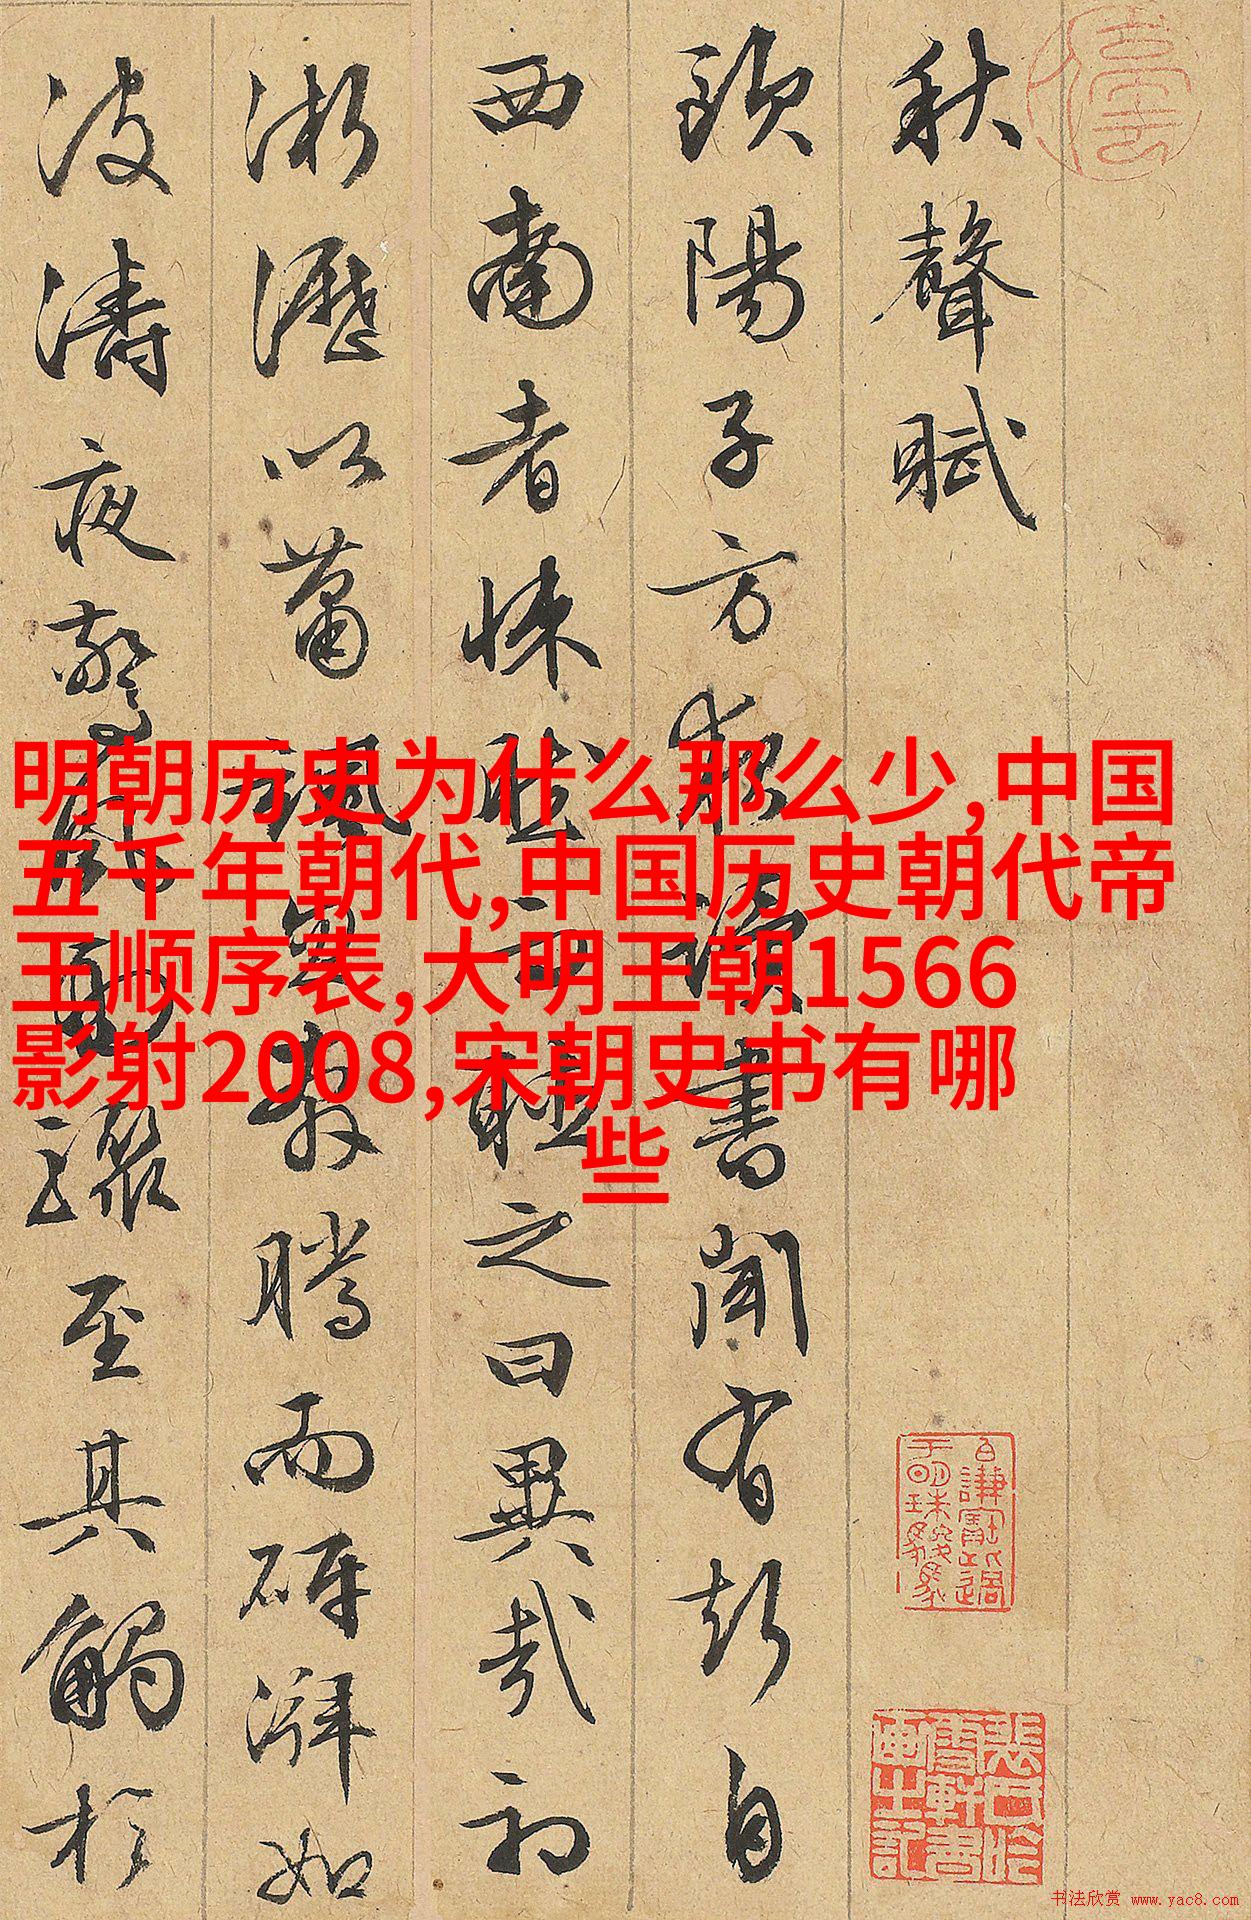 秋聲賦
歐陽子方夜讀書聞有聲自
西南者悚然而聽之曰異哉初
淅瀝以蕭颯忽奔騰而砰湃如
波濤夜驚風雨驟至其觸於
明朝历史为什么那么少,中国
五千年朝代,中国历史朝代帝
王顺序表,大明王朝1566
影射2008,宋朝史书有哪
些
书法欣赏 www.yac8.com